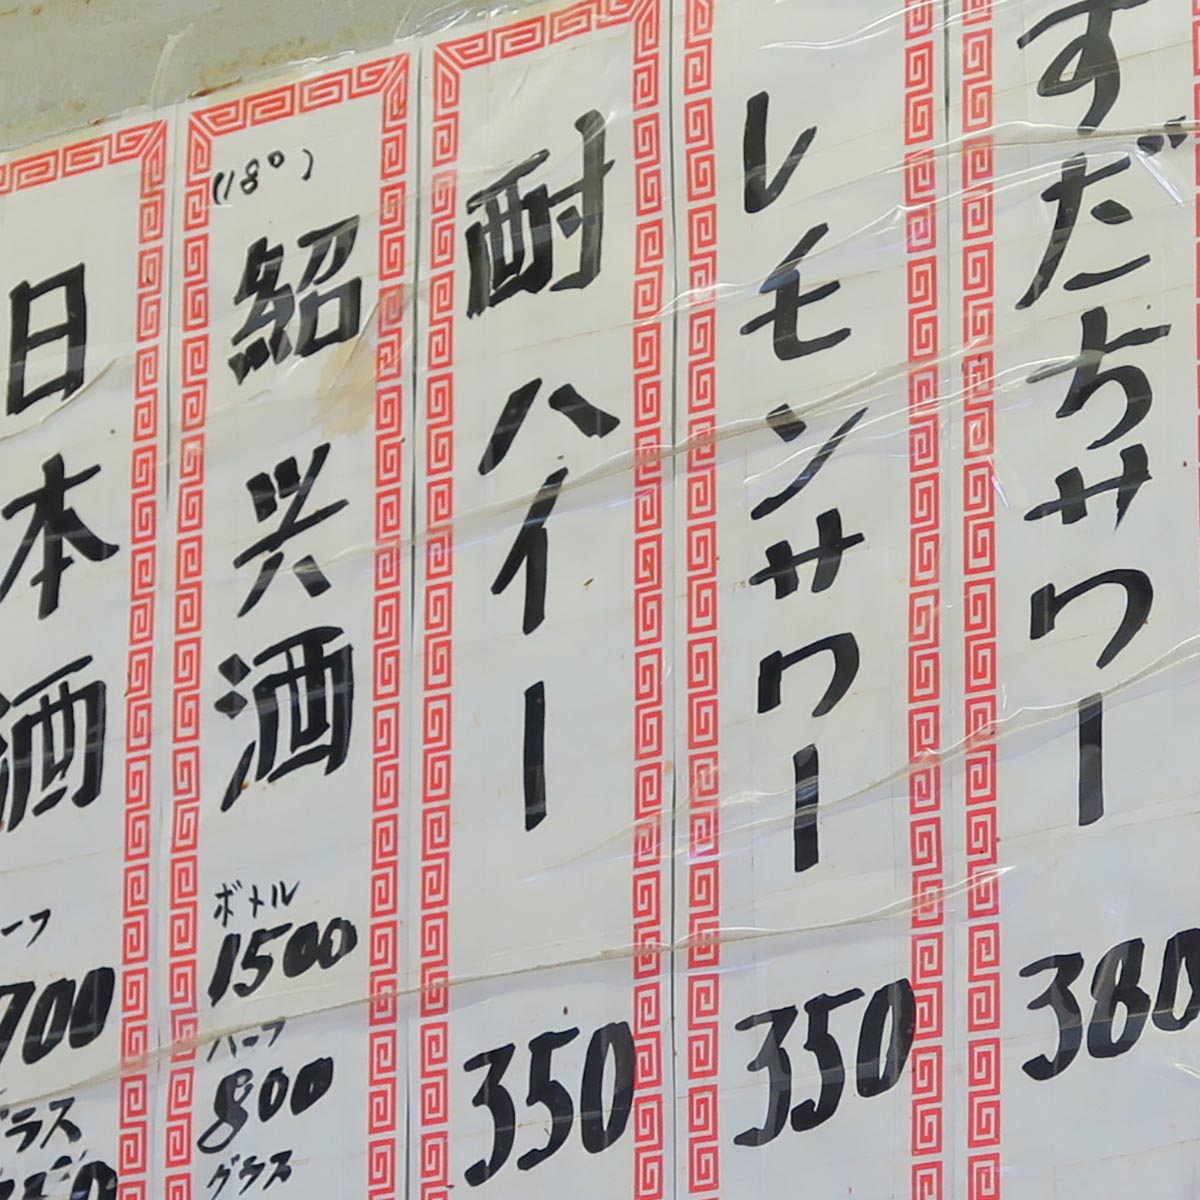 すだちサワー
380
レモンサワー
350
酎ハイー
350
(18°)
紹兴酒
ボトル
1500
ハーフ
800
グラス
日本酒
ーフ
700
グラス